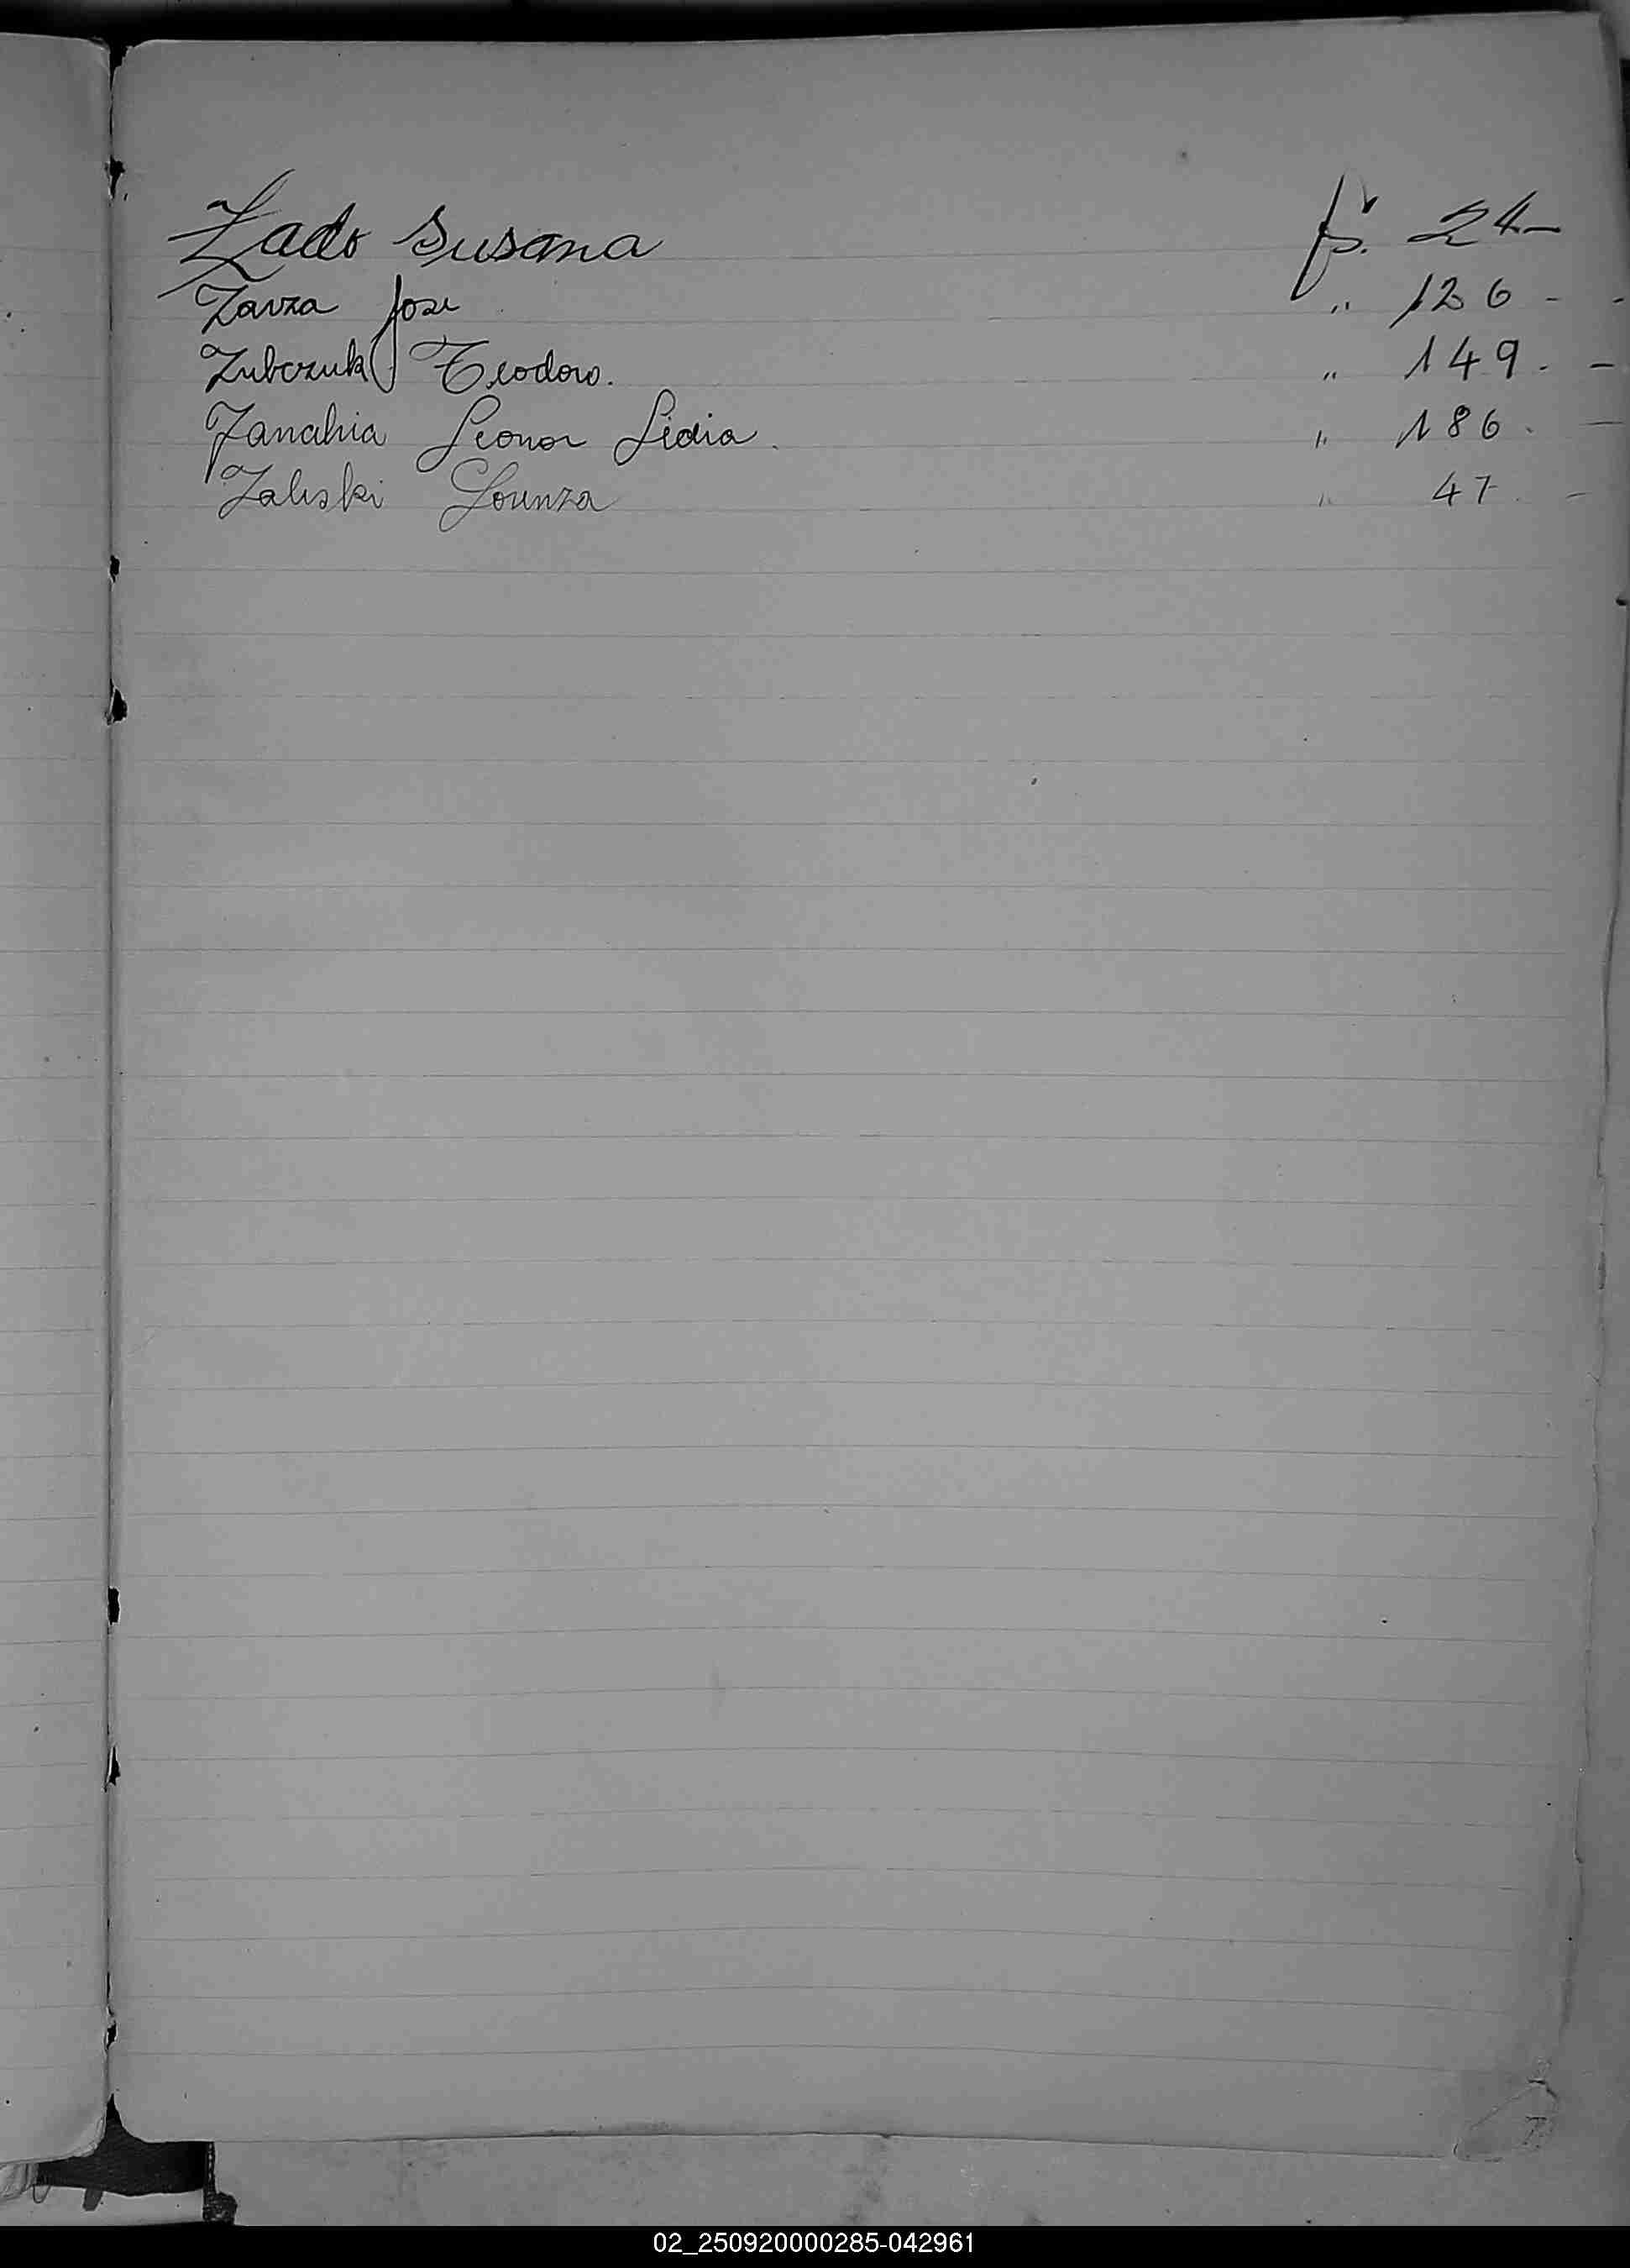 Zado Susana fs. 24-
Zavza Jose " 126 - -
Zubczuk Teodoro. " 149. -
Zanahia Leonor Lidia. " 186. -
Zaleski Lorenza " 47. -
Z
02_250920000285-042961